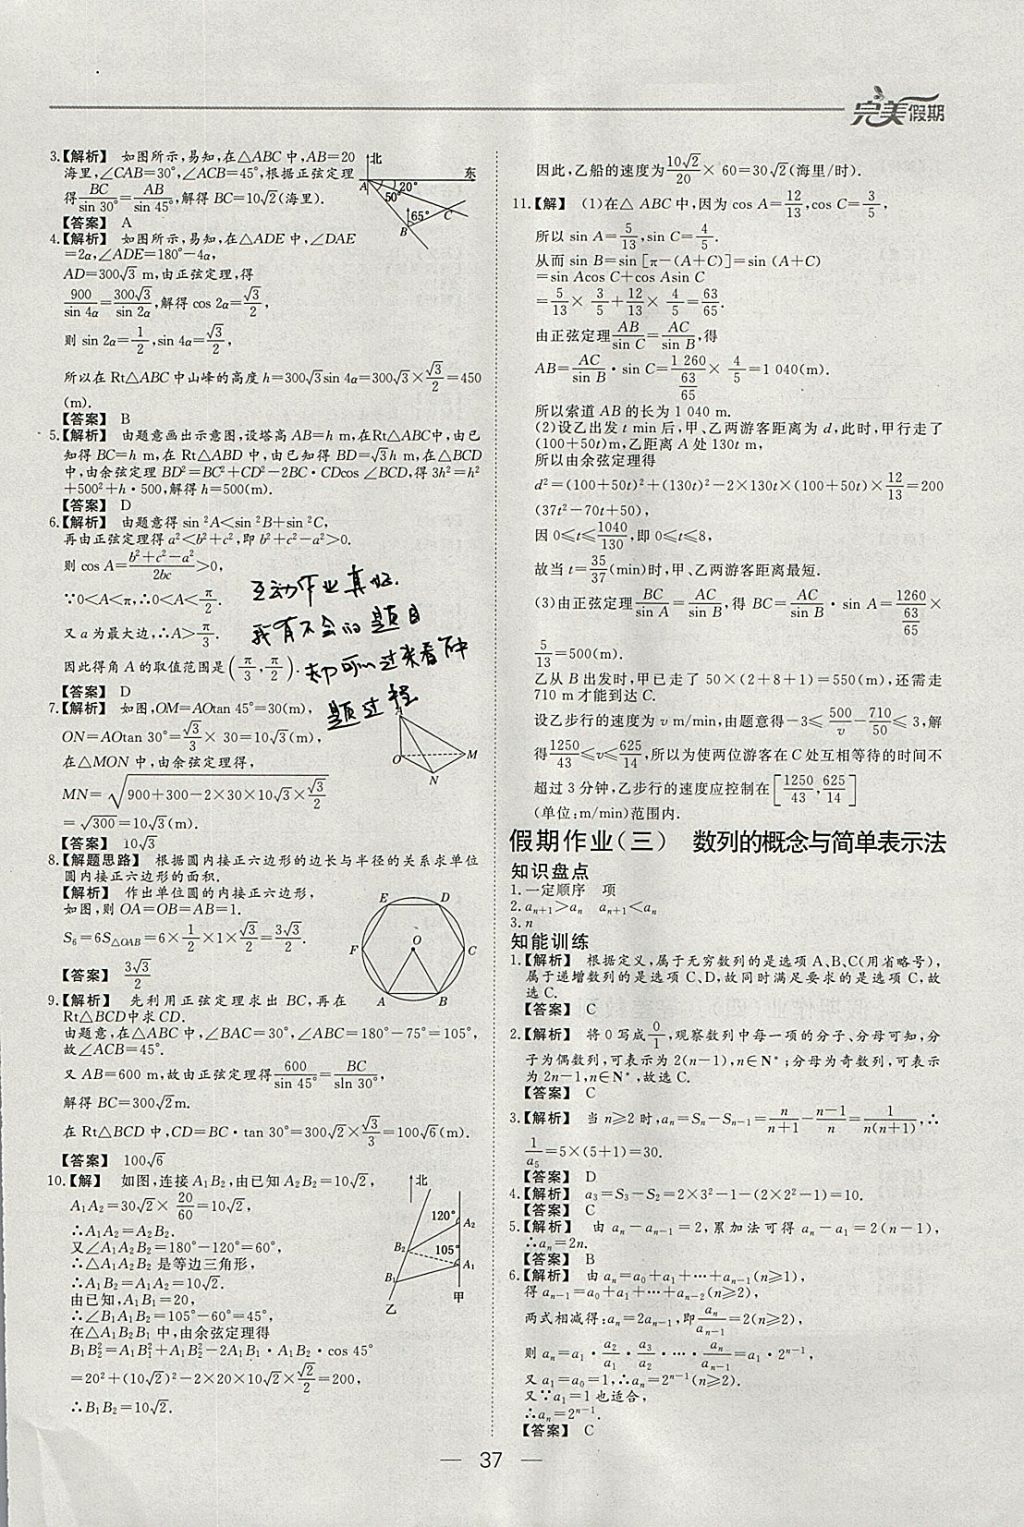 完美假期
3.【解析】 如图所示,易知,在△ABC中,AB=20
海里,∠CAB=30°,∠ACB=45°,根据正弦定理
得BC/sin 30°=AB/sin 45°,解得BC=10√2(海里).
【答案】 A
北
东
A
20°
50°
65°
C
B
4.【解析】 如图所示,易知,在△ADE中,∠DAE
=2α,∠ADE=180°-4α,
AD=300√3 m,由正弦定理,得
900/sin 4α=300√3/sin 2α,解得cos 2α=√3/2,
则 sin 2α=1/2,sin 4α=√3/2,
所以在Rt△ABC中山峰的高度h=300√3sin 4α=300√3×√3/2=450
(m).
【答案】 B
5.【解析】 由题意画出示意图,设塔高AB=h m,在Rt△ABC中,由已
知得BC=h m,在Rt△ABD中,由已知得BD=√3h m,在△BCD
中,由余弦定理BD²=BC²+CD²-2BC·CDcos∠BCD,得3h²=h²
+500²+h·500,解得h=500(m).
【答案】 D
6.【解析】 由题意得sin²A<sin²B+sin²C,
再由正弦定理得a²<b²+c²,即b²+c²-a²>0.
则 cos A=(b²+c²-a²)/2bc>0,
∵0<A<π,∴0<A<π/2.
又a为最大边,∴A>π/3.
因此得角A的取值范围是(π/3,π/2).
【答案】 D
互动作业真好.
我有不会的题目
都可以过来看
题过程
7.【解析】 如图,OM=AOtan 45°=30(m),
ON=AOtan 30°=√3/3×30=10√3(m),
在△MON中,由余弦定理得,
MN=√(900+300-2×30×10√3×√3/2)
=√300=10√3(m).
【答案】 10√3
O
M
N
8.【解题思路】 根据圆内接正六边形的边长与半径的关系求单位
圆内接正六边形的面积.
【解析】 作出单位圆的内接正六边形,
如图,则OA=OB=AB=1.
S₆=6S△OAB=6×1/2×1×√3/2=3√3/2.
【答案】 3√3/2
E
D
F
O
C
A
B
9.【解析】 先利用正弦定理求出BC,再在
Rt△BCD中求CD.
由题意,在△ABC中,∠BAC=30°,∠ABC=180°-75°=105°,
故∠ACB=45°.
又AB=600 m,故由正弦定理得600/sin 45°=BC/sin 30°,
解得BC=300√2m.
在Rt△BCD中,CD=BC·tan 30°=300√2×√3/3=100√6(m).
【答案】 100√6
10.【解】 如图,连接A₁B₂,由已知A₂B₂=10√2,
A₁A₂=30√2×20/60=10√2,
∴A₁A₂=A₂B₂.
又∠A₁A₂B₂=180°-120°=60°,
∴△A₁A₂B₂是等边三角形,
∴A₁B₂=A₁A₂=10√2.
由已知,A₁B₁=20,
∴∠B₁A₁B₂=105°-60°=45°,
在△A₁B₂B₁中,由余弦定理得
B₁B₂²=A₁B₁²+A₁B₂²-2A₁B₁·A₁B₂·cos 45°
=20²+(10√2)²-2×20×10√2×√2/2=200,
∴B₁B₂=10√2.
北
120°
A₂
B₂
105°
A₁
B₁
乙
甲
因此,乙船的速度为10√2/20×60=30√2(海里/时).
11.【解】 (1)在△ABC中,因为cos A=12/13,cos C=3/5,
所以sin A=5/13,sin C=4/5.
从而sin B=sin[π-(A+C)]=sin(A+C)
=sin Acos C+cos Asin C
=5/13×3/5+12/13×4/5=63/65.
由正弦定理AB/sin C=AC/sin B,得
AB=AC/sin B·sin C=1 260/(63/65)×4/5=1 040(m).
所以索道AB的长为1 040 m.
(2)设乙出发t min后,甲、乙两游客距离为d,此时,甲行走了
(100+50t)m,乙距离A处130t m,
所以由余弦定理得
d²=(100+50t)²+(130t)²-2×130t×(100+50t)×12/13=200
(37t²-70t+50),
因0≤t≤1040/130,即0≤t≤8,
故当t=35/37(min)时,甲、乙两游客距离最短.
(3)由正弦定理BC/sin A=AC/sin B,得BC=AC/sin B·sin A=1260/(63/65)×
5/13=500(m).
乙从B出发时,甲已走了50×(2+8+1)=550(m),还需走
710 m才能到达C.
设乙步行的速度为v m/min,由题意得-3≤500/v-710/50≤3,解
得1250/43≤v≤625/14,所以为使两位游客在C处互相等待的时间不
超过3分钟,乙步行的速度应控制在[1250/43,625/14]
(单位:m/min)范围内.
假期作业(三) 数列的概念与简单表示法
知识盘点
1.一定顺序 项
2.aₙ₊₁>aₙ aₙ₊₁<aₙ
3.n
知能训练
1.【解析】 根据定义,属于无穷数列的是选项A、B、C(用省略号),
属于递增数列的是选项C、D,故同时满足要求的是选项C,故
选C.
【答案】 C
2.【解析】 将0写成0/1,观察数列中每一项的分子、分母可知,分
子为偶数列,可表示为2(n-1),n∈N*;分母为奇数列,可表示
为2n-1,n∈N*,故选C.
【答案】 C
3.【解析】 当n≥2时,aₙ=Sₙ-Sₙ₋₁=n/(n+1)-(n-1)/n=1/n(n+1),∴
1/a₅=5×(5+1)=30.
【答案】 D
4.【解析】 a₃=S₃-S₂=2×3²-1-(2×2²-1)=10.
【答案】 C
5.【解析】 由aₙ-aₙ₋₁=2,累加法可得aₙ-a₁=2(n-1),
∴aₙ=2n.
【答案】 B
6.【解析】 由aₙ=a₀+a₁+…+aₙ₋₁(n≥1),
得aₙ₋₁=a₀+a₁+…+aₙ₋₂(n≥2),
两式相减得:aₙ=2aₙ₋₁,即aₙ/aₙ₋₁=2(n≥2),
则aₙ=a₁·a₂/a₁·a₃/a₂·…·aₙ/aₙ₋₁=a₁·2ⁿ⁻¹,
又a₁=a₀=1,∴aₙ=2ⁿ⁻¹(n≥2).
又∵a₁=1也适合,
∴aₙ=2ⁿ⁻¹.
【答案】 C
37